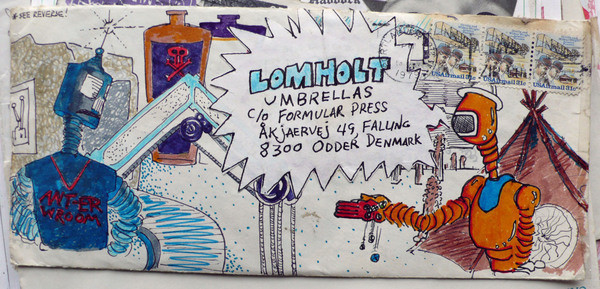 *SEE REVERSE!
LOMHOLT
UMBRELLAS
C/O FORMULAR PRESS
ÅKJAERVEJ 49, FALLING
8300 ODDER DENMARK
USAirmail 31c
USAirmail 31c
USAirmail 31c